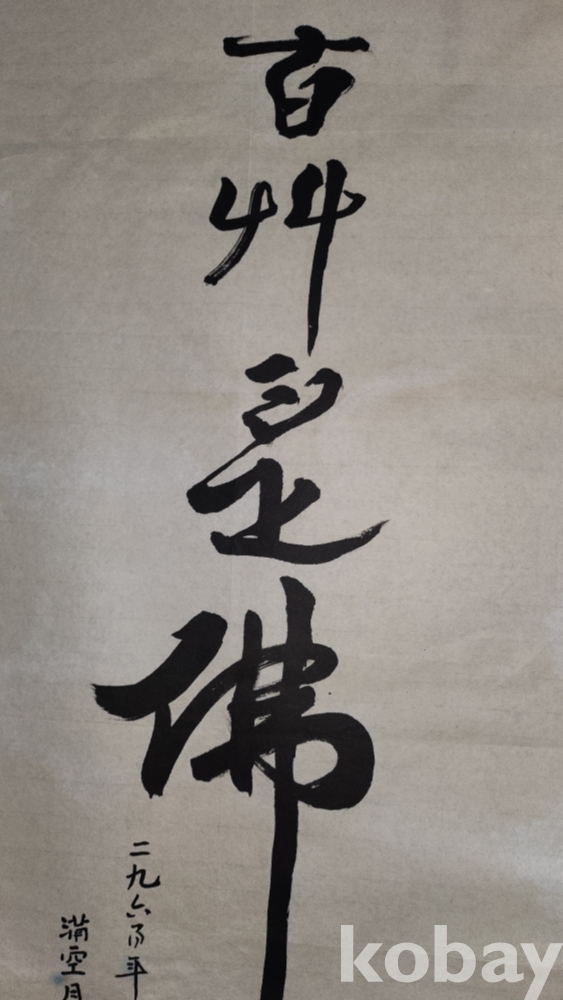 百艸是佛
二九六 年
滿空月
kobay